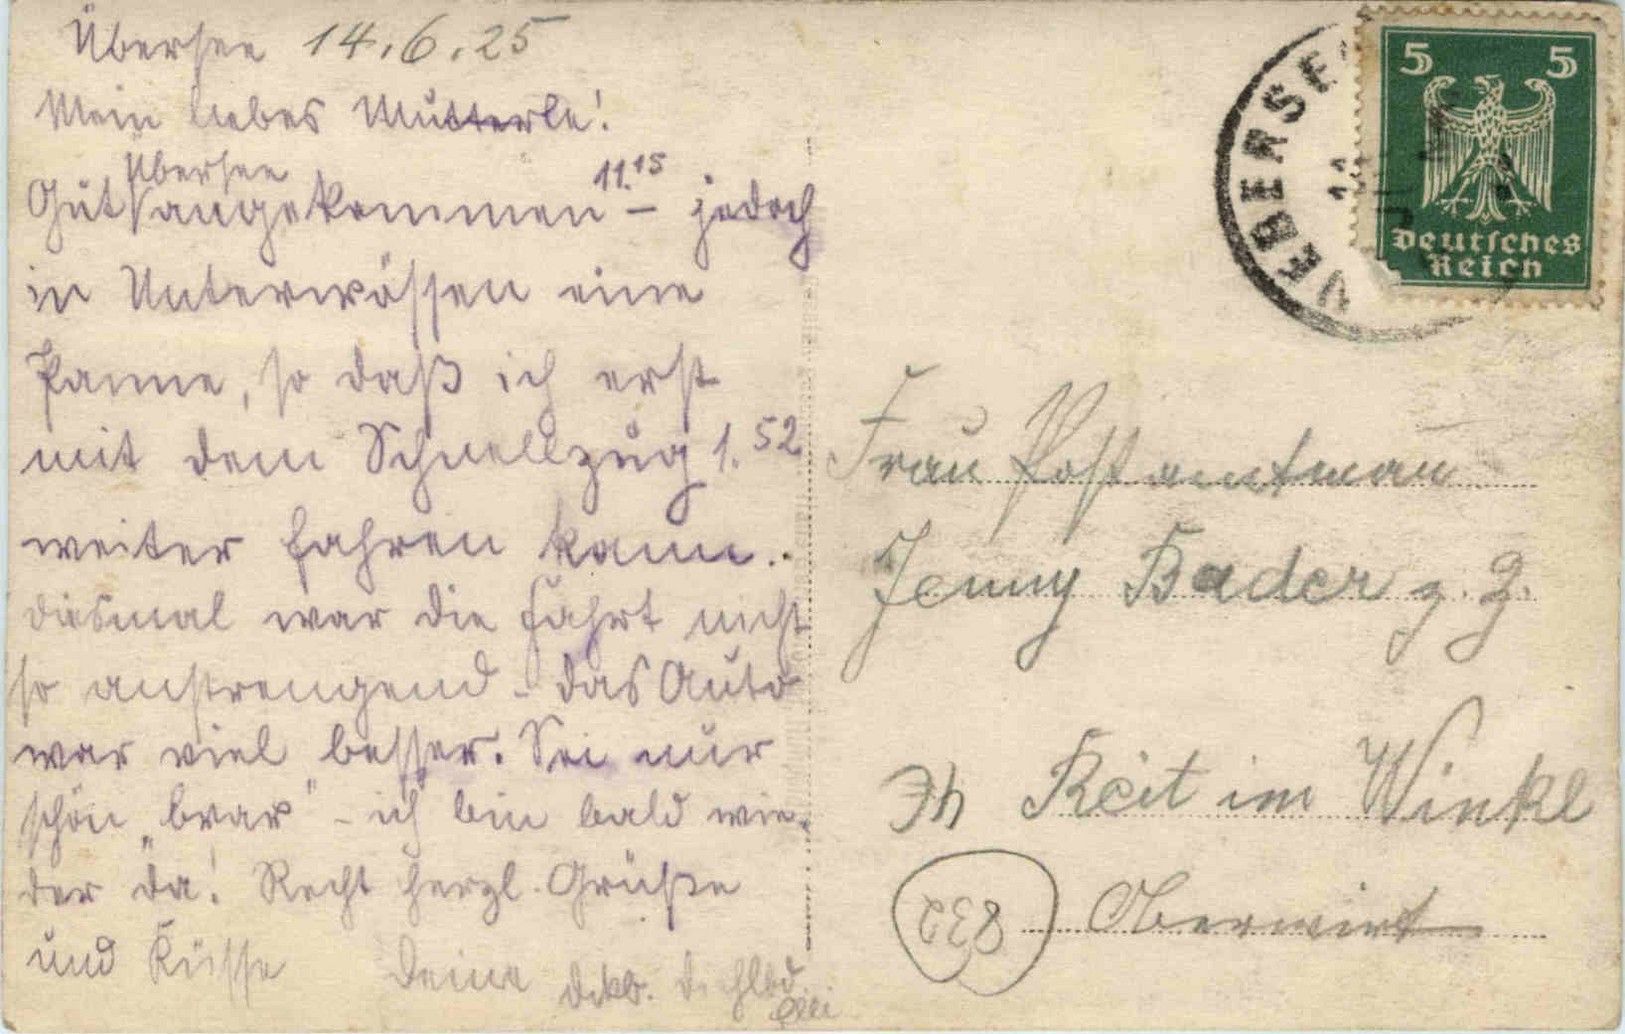 Übersee 14.6.25
Mein liebes Mutterle!
Übersee 11.15
Gut angekommen – jedoch
in Unterwössen eine
Panne, so daß ich erst
mit dem Schnellzug 1.52
weiter fahren kann.
diesmal war die Fahrt nicht
so anstrengend – das Auto
war viel besser. Sei nur
schön „brav" – ich bin bald wie-
der da! Recht herzl. Grüße
und Küsse Deine dkb.
Elli
UEBERSEE
14
JUN
5 5
Deutsches
Reich
Frau Postamtman
Jenny Bader z. Z.
Reit im Winkl
Oberwirt
832